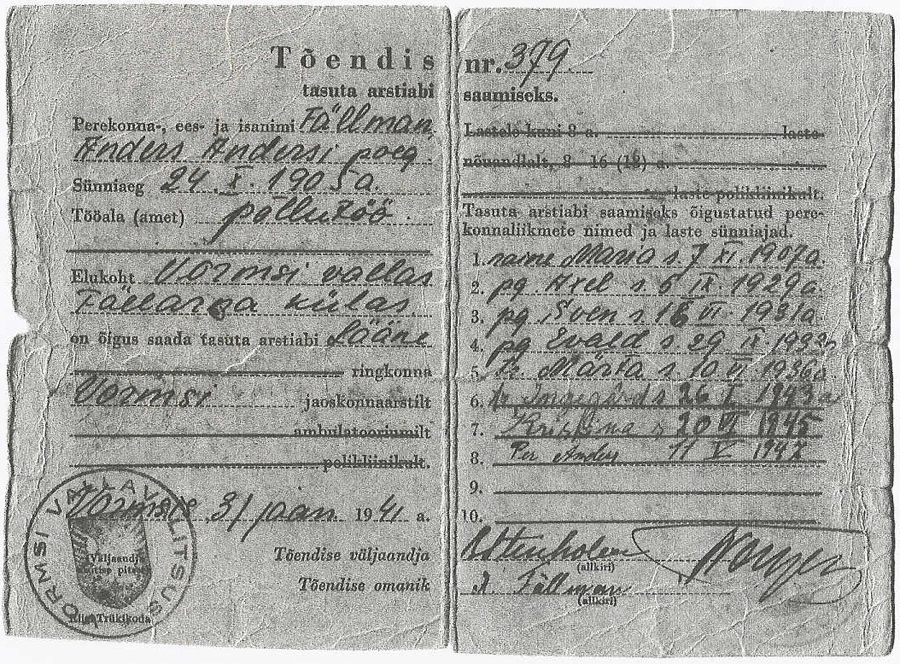 Tõendis
tasuta arstiabi
Perekonna-, ees- ja isanimi Fällman,
Anders Andersi poeg.
Sünniaeg 24. X. 1905 a.
Tööala (amet) põllutöö.
Elukoht Vormsi vallas
Fällarna külas.
on õigus saada tasuta arstiabi Lääne
ringkonna
Vormsi jaoskonnaarstilt
ambulatooriumilt
polikliinikult.
Vormsil, 31 jaan. 1941. a.
Tõendise väljaandja
Tõendise omanik
VORMSI VALLAVALITSUS
Väljaandja
Riigi Trükikoda
nr. 379
saamiseks.
Lastele kuni 8 a. laste-
nõuandlalt, 8–16 (18) a.
laste polikliinikult.
Tasuta arstiabi saamiseks õigustatud pere-
konnaliikmete nimed ja laste sünniajad.
1. naine Maria s. 7 XI. 1907a.
2. pg. Axel s. 6 IX. 1929a.
3. pg. Sven s. 16 VI. 1931a.
4. pg Evald s. 29 II
5. tr. Märta s. 10 VI 1936a
6. tr Ingegärd s 26 I 1943a
7. Kristina s 20 VI 1945
8. Per Anders 11 V 1947
9.
10.
(allkiri)
A Fällman
(allkiri)